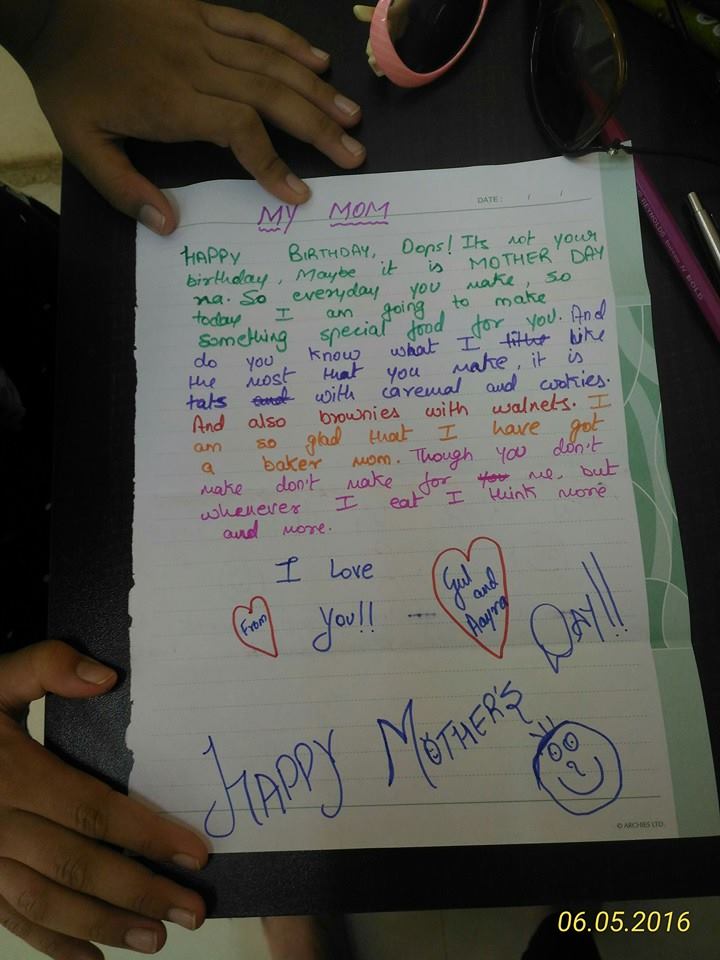 DATE: / /
MY MOM
HAPPY BIRTHDAY, Oops! Its not your
birthday, Maybe it is MOTHER DAY
na. So everyday you make, so
today I am going to make
something special food for you. And
do you know what I like
the most that you make, it is
tats and with caremal and cookies.
And also brownies with walnets. I
am so glad that I have got
a baker mom. Though you don't
make don't make for you me, but
whenever I eat I think more
and more.
I Love
From You!! -- Gul and Aayra
HAPPY MOTHER'S DAY!!
© ARCHIES LTD.
REYNOLDS BOLD
06.05.2016